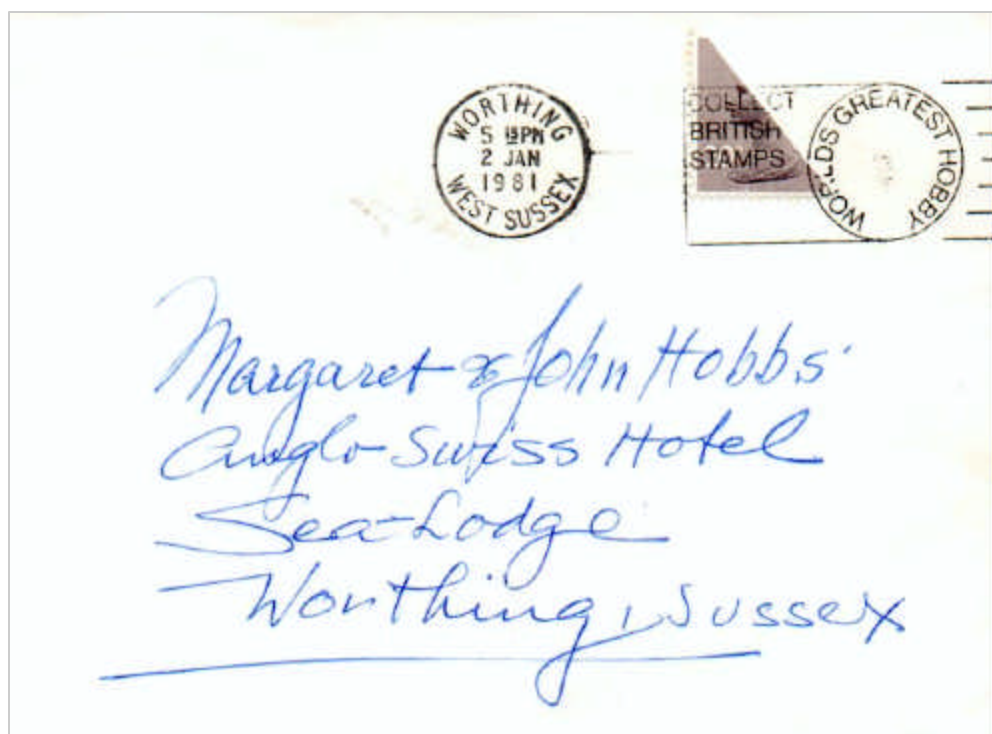 WORTHING
5 15PM
2 JAN
1981
WEST SUSSEX
COLLECT
BRITISH
STAMPS
WORLDS GREATEST HOBBY
Margaret & John Hobbs
Anglo-Swiss Hotel
Sea-Lodge
Worthing, Sussex